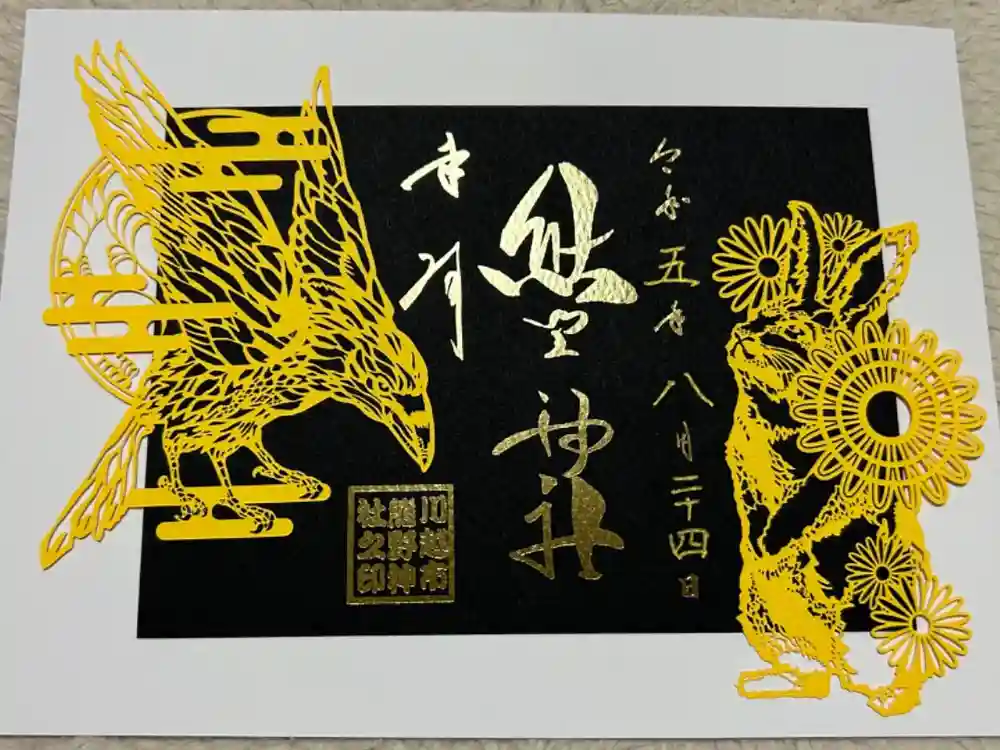 令和五年八月二十四日
熊野神社
幸月
川越市
熊野神
社之印